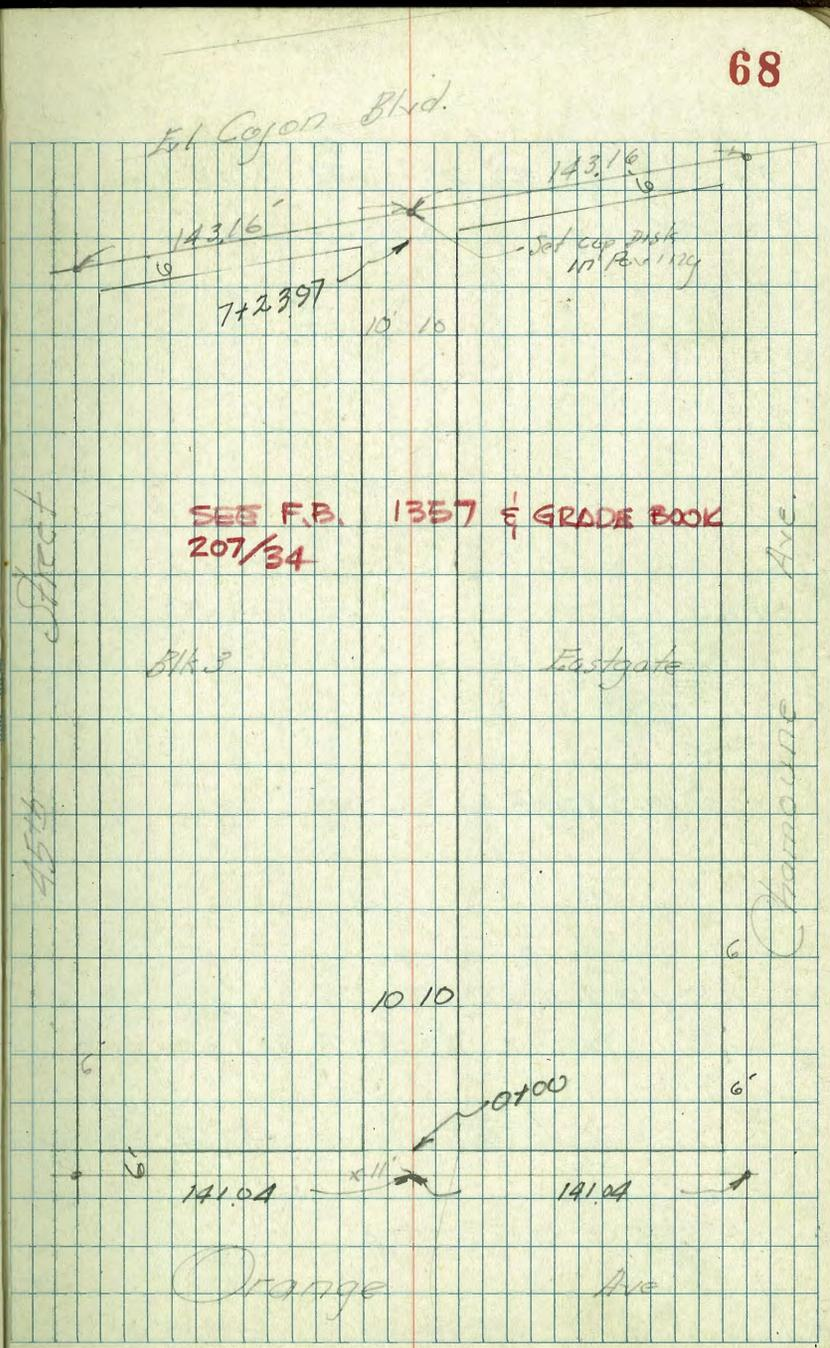 68
El Cajon Blvd.
143.16'
143.16
6
6
Set Cop Disk
in Paving
7+23.97
10' 10
SEE F.B. 1357 & GRADE BOOK
207/34
45th Street
Blk 3
Eastgate
Chamoune Ave.
6
10 10
6'
6'
0+00
6'
x 11'
141.04
141.04
Orange Ave